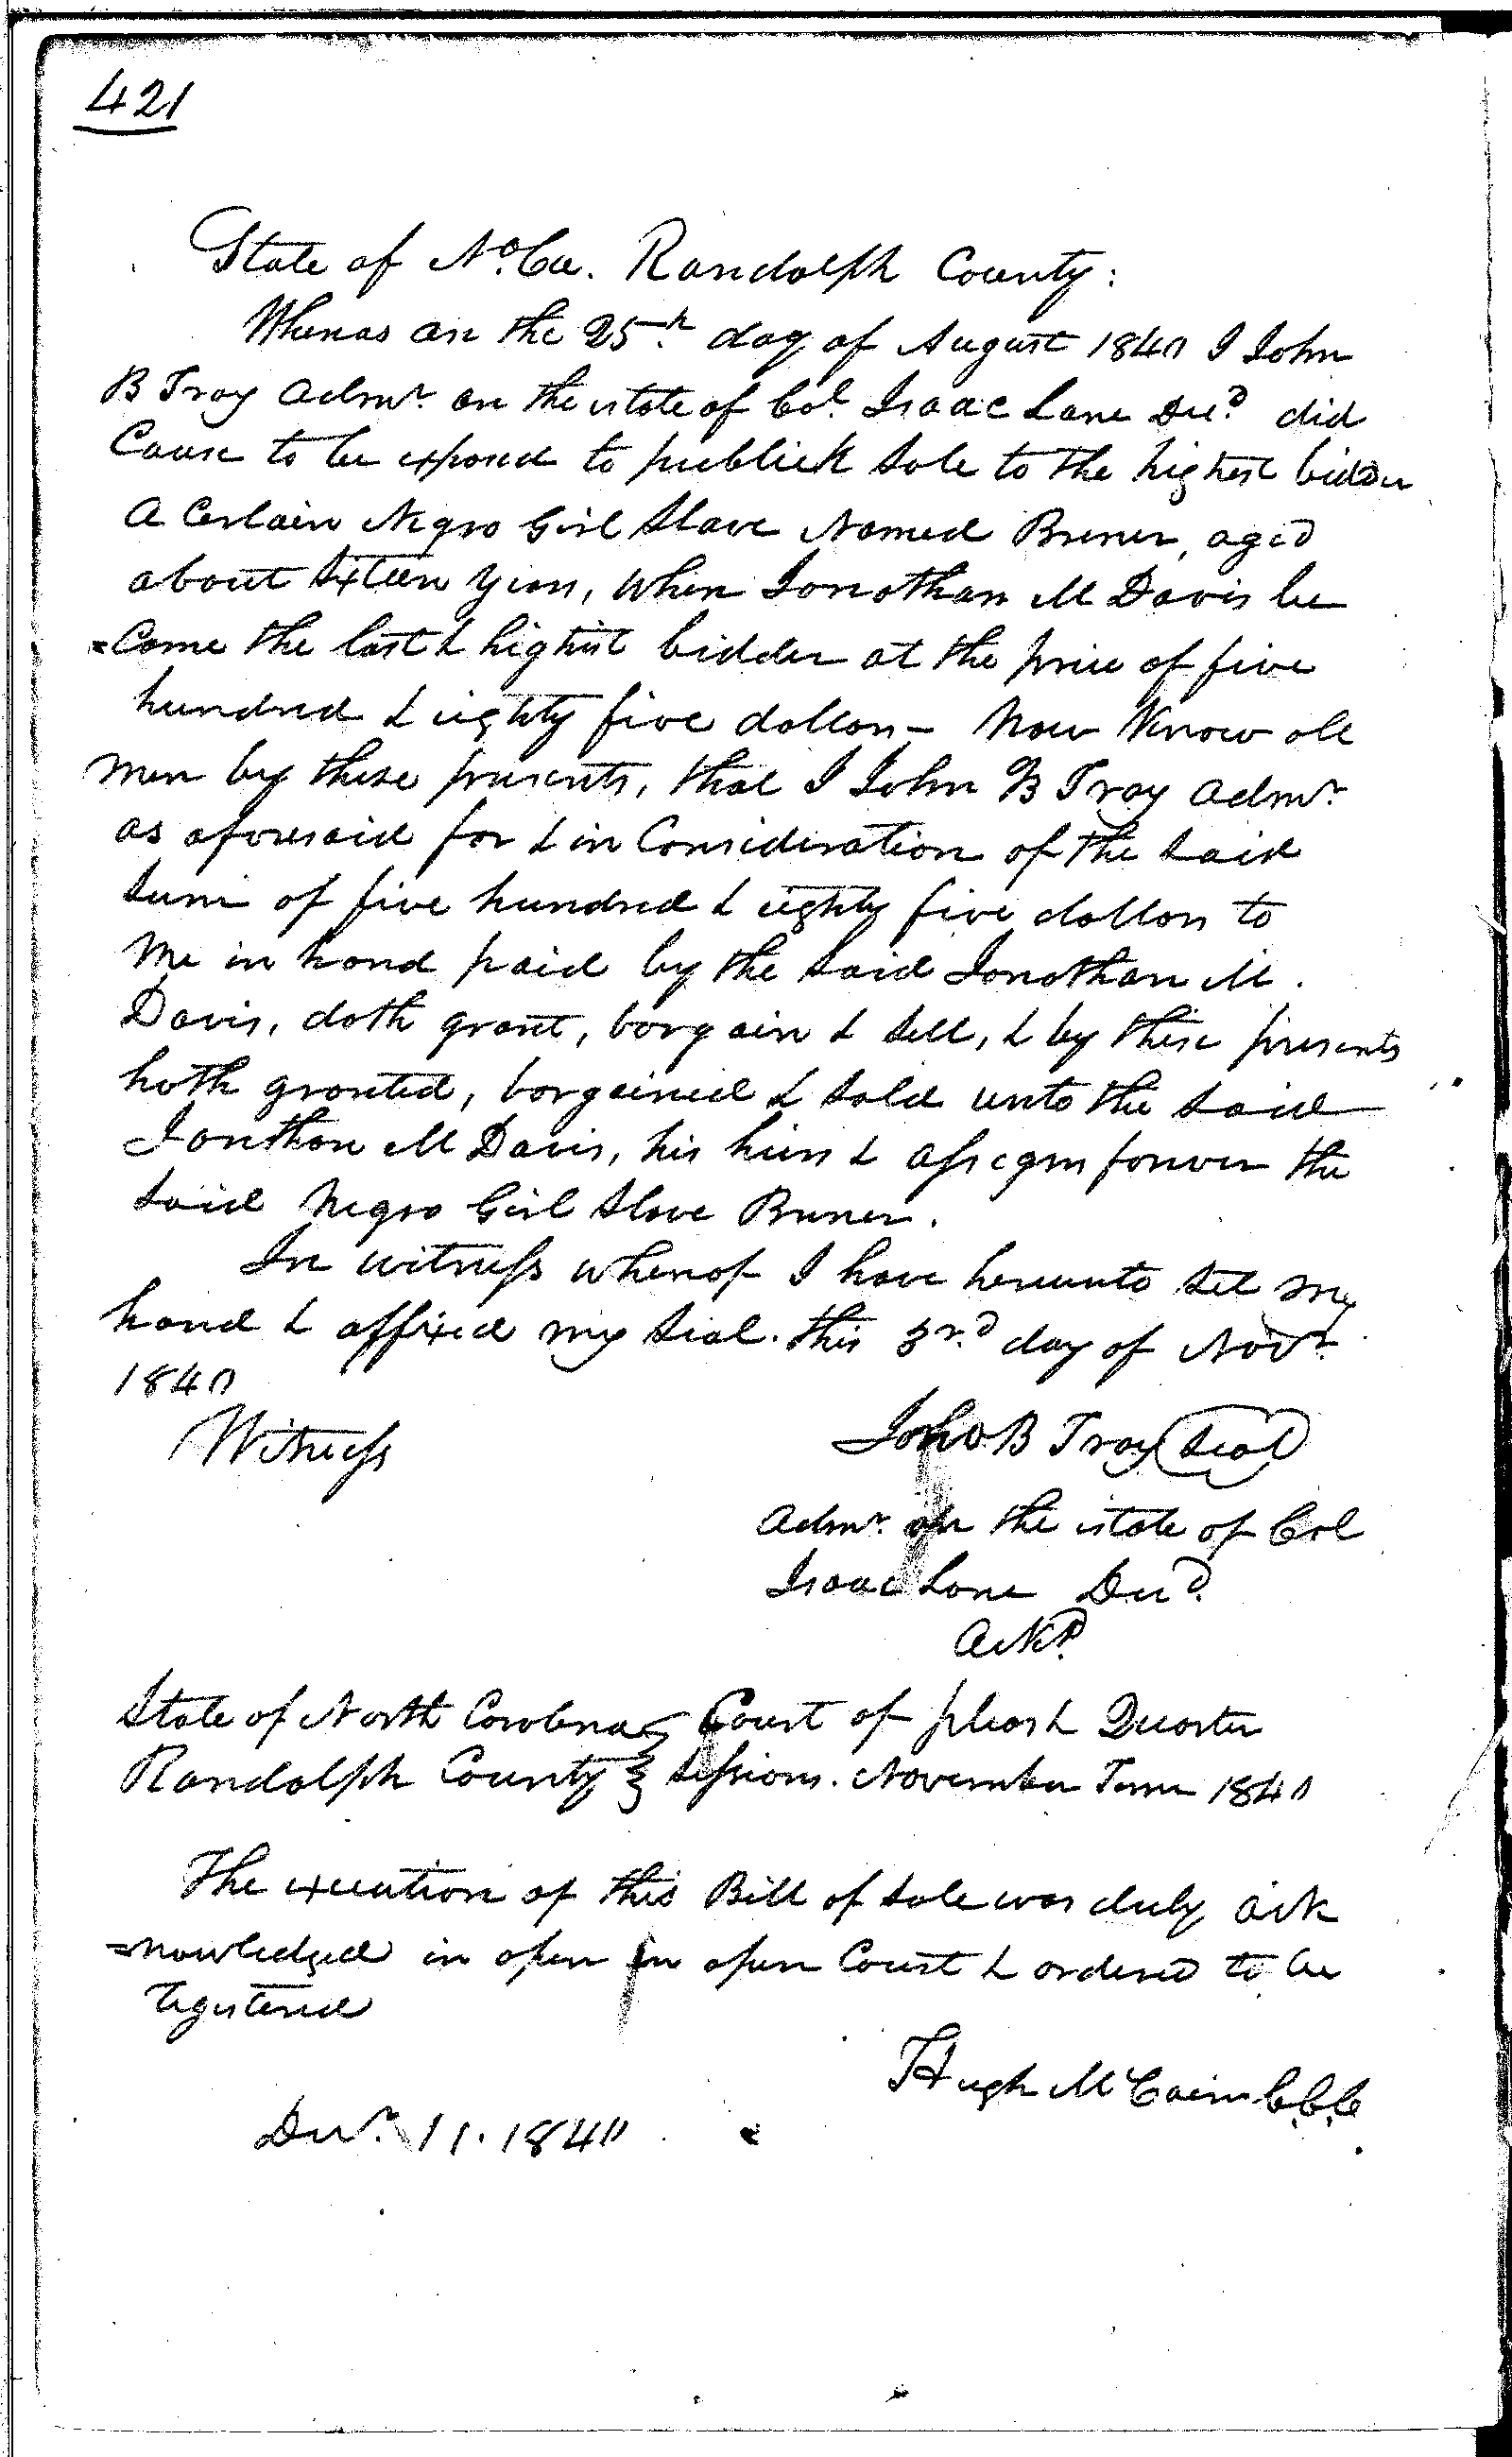 421
State of No. Ca. Randolph County:
Whereas on the 25th day of August 1840 I John
B Troy Admr. on the estate of Col. Isaac Lane Decd. did
Cause to be exposed to publick Sale to the highest bidder
a Certain Negro Girl Slave Named Bruner, aged
about Sixteen years, when Jonathan M Davis be
=Came the last & highest bidder at the price of five
hundred & eighty five dollars - Now Know all
men by these presents, that I John B Troy Admr.
as aforesaid for & in Consideration of the Said
Sum of five hundred & eighty five dollars to
me in hand paid by the Said Jonathan M.
Davis, doth grant, bargain & Sell, & by these presents
hath granted, bargained & Sold unto the Said
Jonthan M Davis, his heirs & assigns forever the
Said Negro Girl Slave Bruner.
In witness whereof I have hereunto Set my
hand & affixed my Seal. this 3rd. day of Novr.
1840
Witness
John B Troy Seal
Admr. on the estate of Col
Isaac Lane Decd.
Ackd.
State of North Carolina } Court of pleas & Quarter
Randolph County } Sessions. November Term 1840
The execution of this Bill of Sale was duly ack
=nowledged in open in open Court & ordered to be
registered
Hugh McCain C.C.C.
Decr. 11. 1840